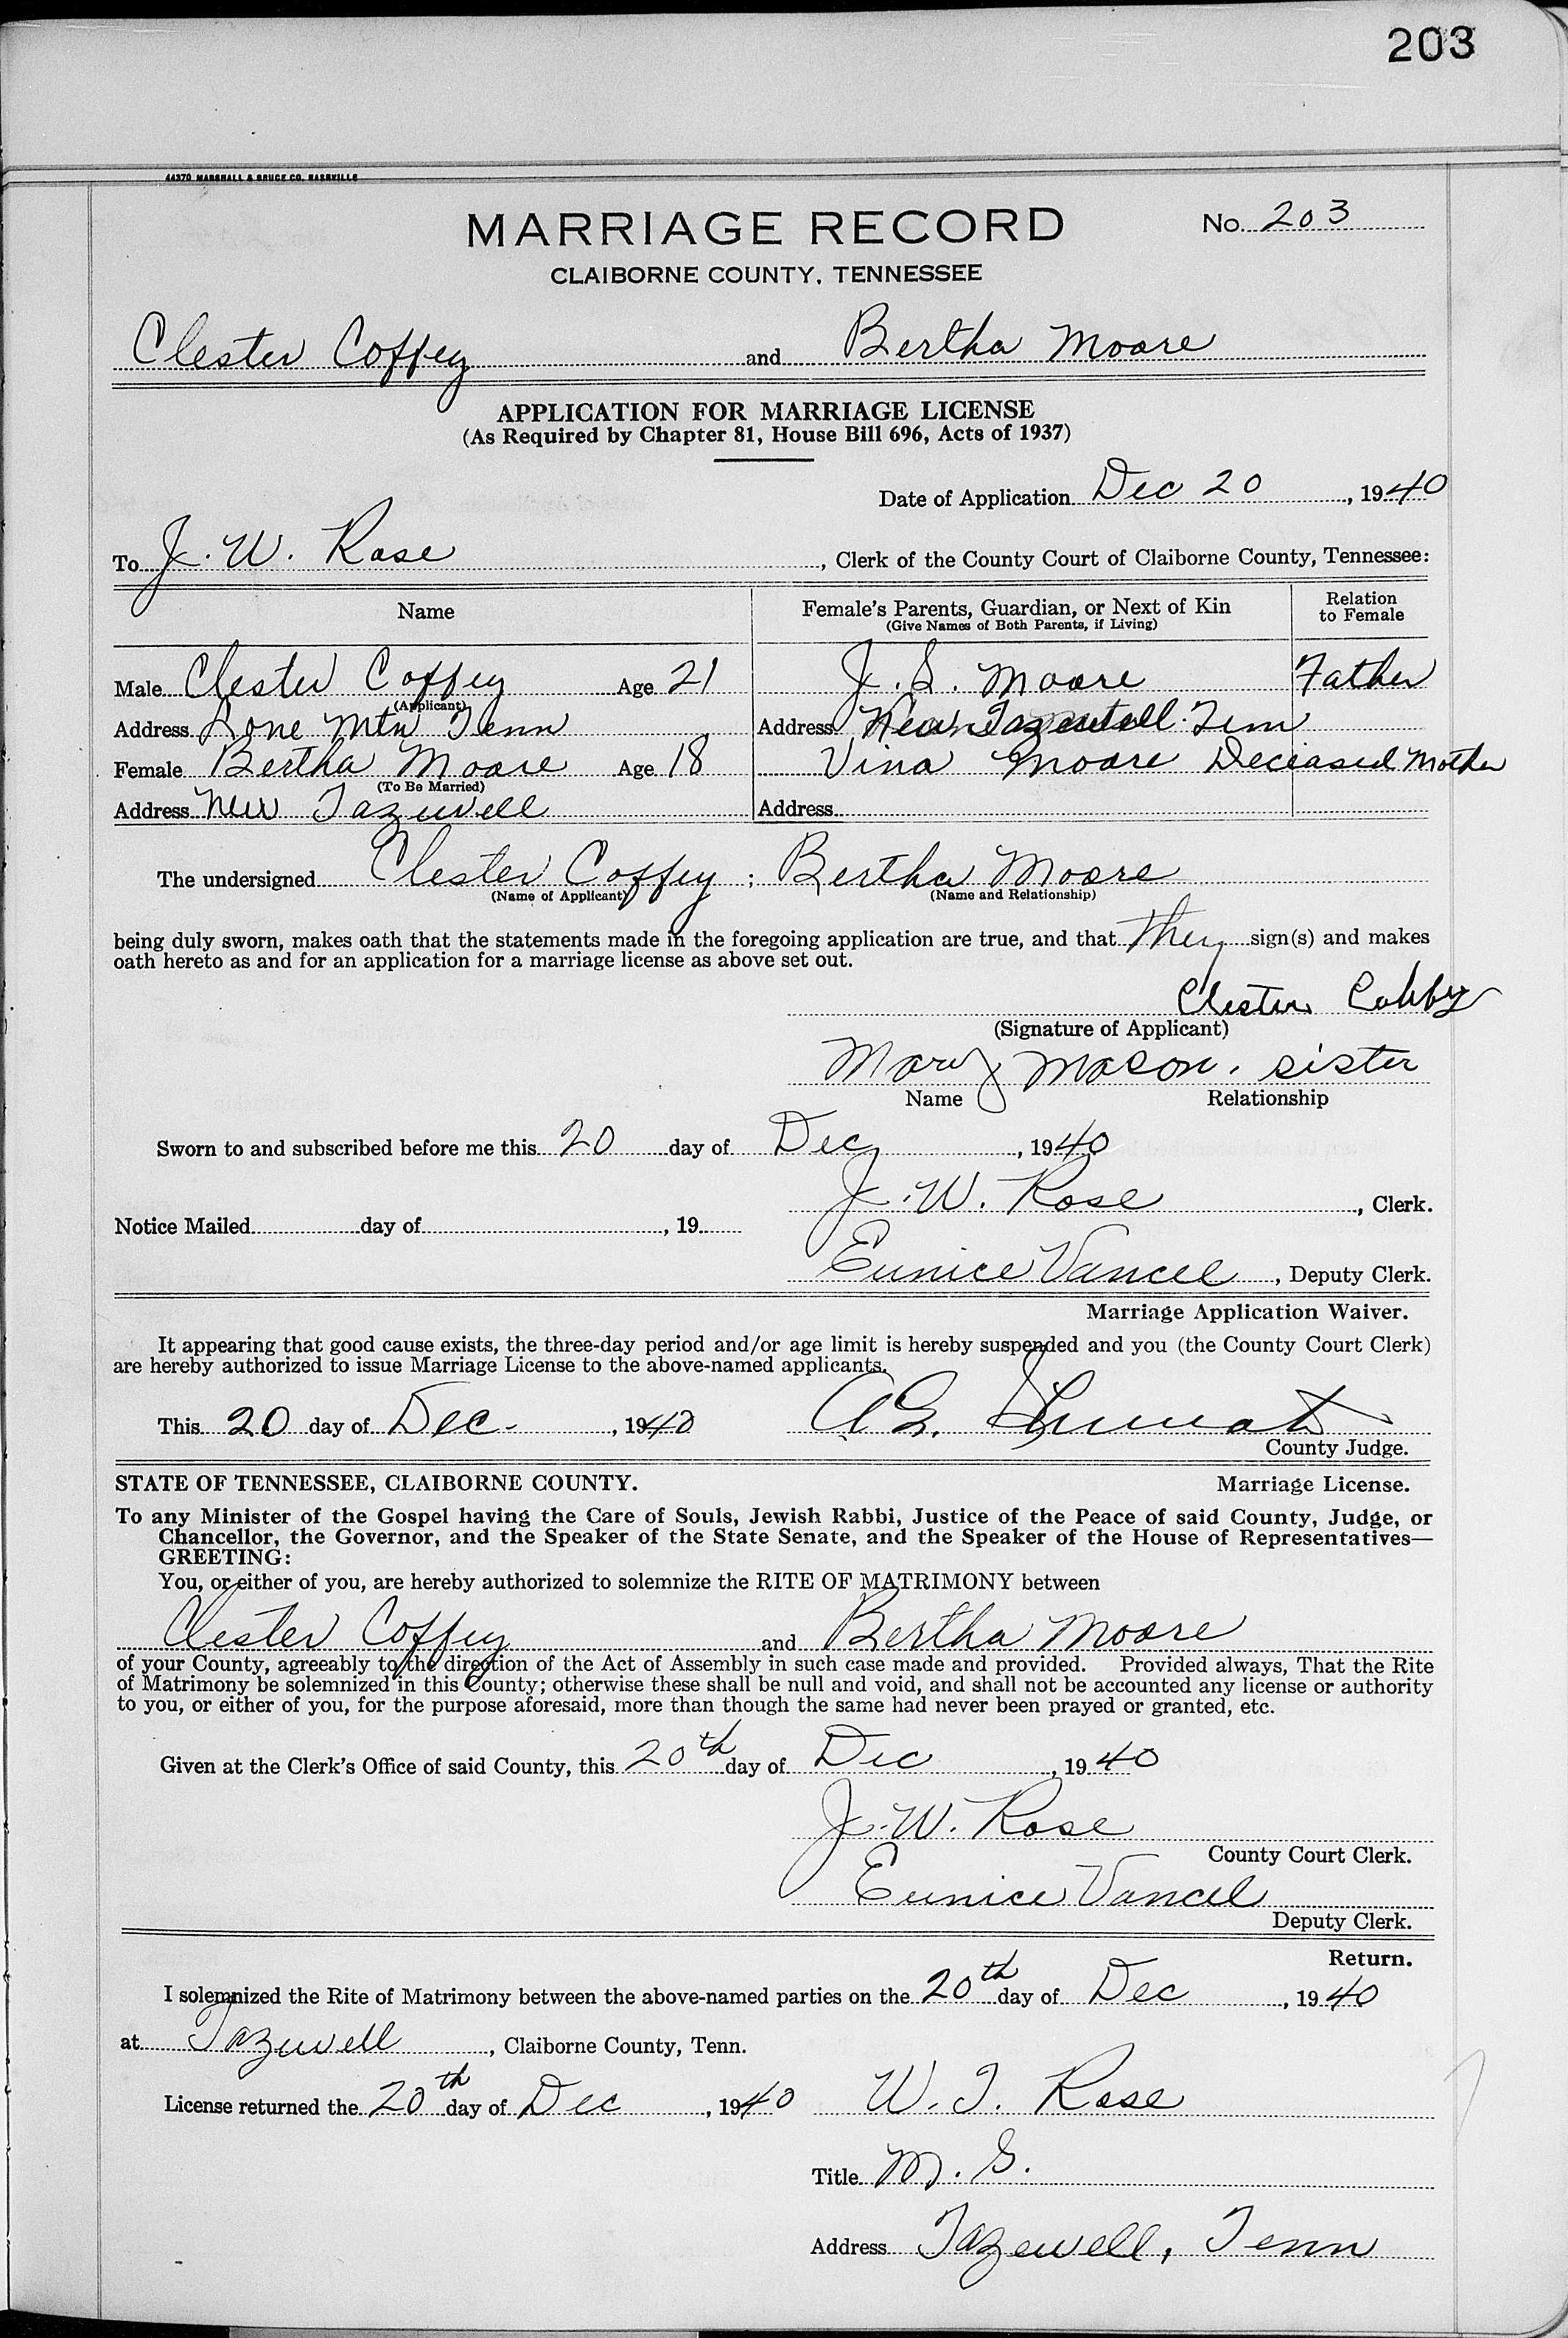 203
44370 MARSHALL & BRUCE CO. NASHVILLE
MARRIAGE RECORD
No. 203
CLAIBORNE COUNTY, TENNESSEE
Clester Coffey and Bertha Moore
APPLICATION FOR MARRIAGE LICENSE
(As Required by Chapter 81, House Bill 696, Acts of 1937)
Date of Application Dec 20, 1940
To J. W. Rose, Clerk of the County Court of Claiborne County, Tennessee:
Name Female's Parents, Guardian, or Next of Kin Relation
(Give Names of Both Parents, if Living) to Female
Male Clester Coffey Age 21 J. S. Moore Father
(Applicant)
Address Lone Mtn Tenn Address New Tazewell Tenn
Female Bertha Moore Age 18 Vina Moore Deceased Mother
(To Be Married)
Address New Tazewell Address
The undersigned Clester Coffey ; Bertha Moore
(Name of Applicant) (Name and Relationship)
being duly sworn, makes oath that the statements made in the foregoing application are true, and that they sign(s) and makes
oath hereto as and for an application for a marriage license as above set out.
Clester
(Signature of Applicant)
Mary Mason. sister
Name Relationship
Sworn to and subscribed before me this 20 day of Dec, 1940
J. W. Rose, Clerk.
Notice Mailed day of , 19
Eunice Vancel, Deputy Clerk.
Marriage Application Waiver.
It appearing that good cause exists, the three-day period and/or age limit is hereby suspended and you (the County Court Clerk)
are hereby authorized to issue Marriage License to the above-named applicants.
This 20 day of Dec., 1940
County Judge.
STATE OF TENNESSEE, CLAIBORNE COUNTY. Marriage License.
To any Minister of the Gospel having the Care of Souls, Jewish Rabbi, Justice of the Peace of said County, Judge, or
Chancellor, the Governor, and the Speaker of the State Senate, and the Speaker of the House of Representatives—
GREETING:
You, or either of you, are hereby authorized to solemnize the RITE OF MATRIMONY between
Clester Coffey and Bertha Moore
of your County, agreeably to the direction of the Act of Assembly in such case made and provided. Provided always, That the Rite
of Matrimony be solemnized in this County; otherwise these shall be null and void, and shall not be accounted any license or authority
to you, or either of you, for the purpose aforesaid, more than though the same had never been prayed or granted, etc.
Given at the Clerk's Office of said County, this 20th day of Dec, 1940
J. W. Rose
County Court Clerk.
Eunice Vancel
Deputy Clerk.
Return.
I solemnized the Rite of Matrimony between the above-named parties on the 20th day of Dec, 1940
at Tazewell, Claiborne County, Tenn.
License returned the 20th day of Dec, 1940 W. T. Rose
Title M. G.
Address Tazewell, Tenn